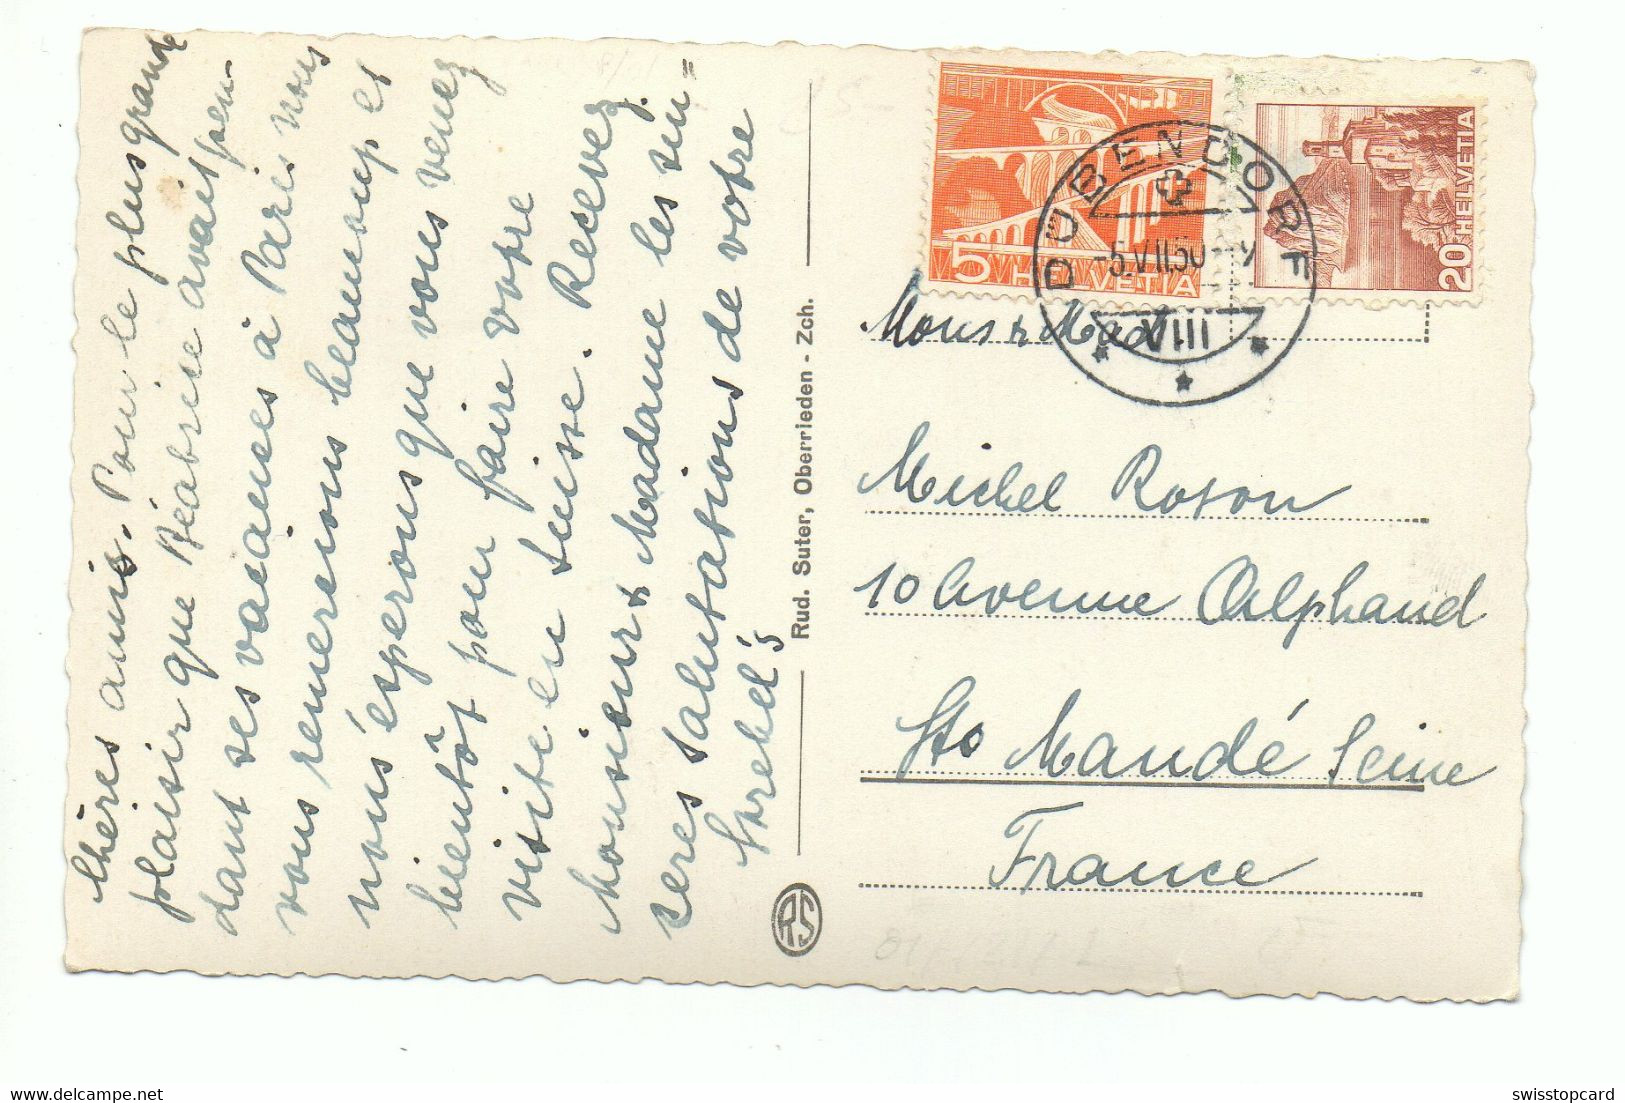 Chères amis. Pour le plus grande
plaisir que Béabrice avait pen-
dant ses vacances à Paris nous
vous remersions beaucoup et
nous ésperons que vous venez
bientôt pour faire votre
visite en Suisse. Recevez
Monsieur & Madame les sin=
seres salutations de votre
Strebel's
Rud. Suter, Oberrieden - Zch.
RS
5 HELVETIA
20 HELVETIA
DÜBENDORF
-5.VII.50
Mons & Mad
Michel Roton
10 Avenue Alphand
St. Mandé Seine
France
swisstopcard